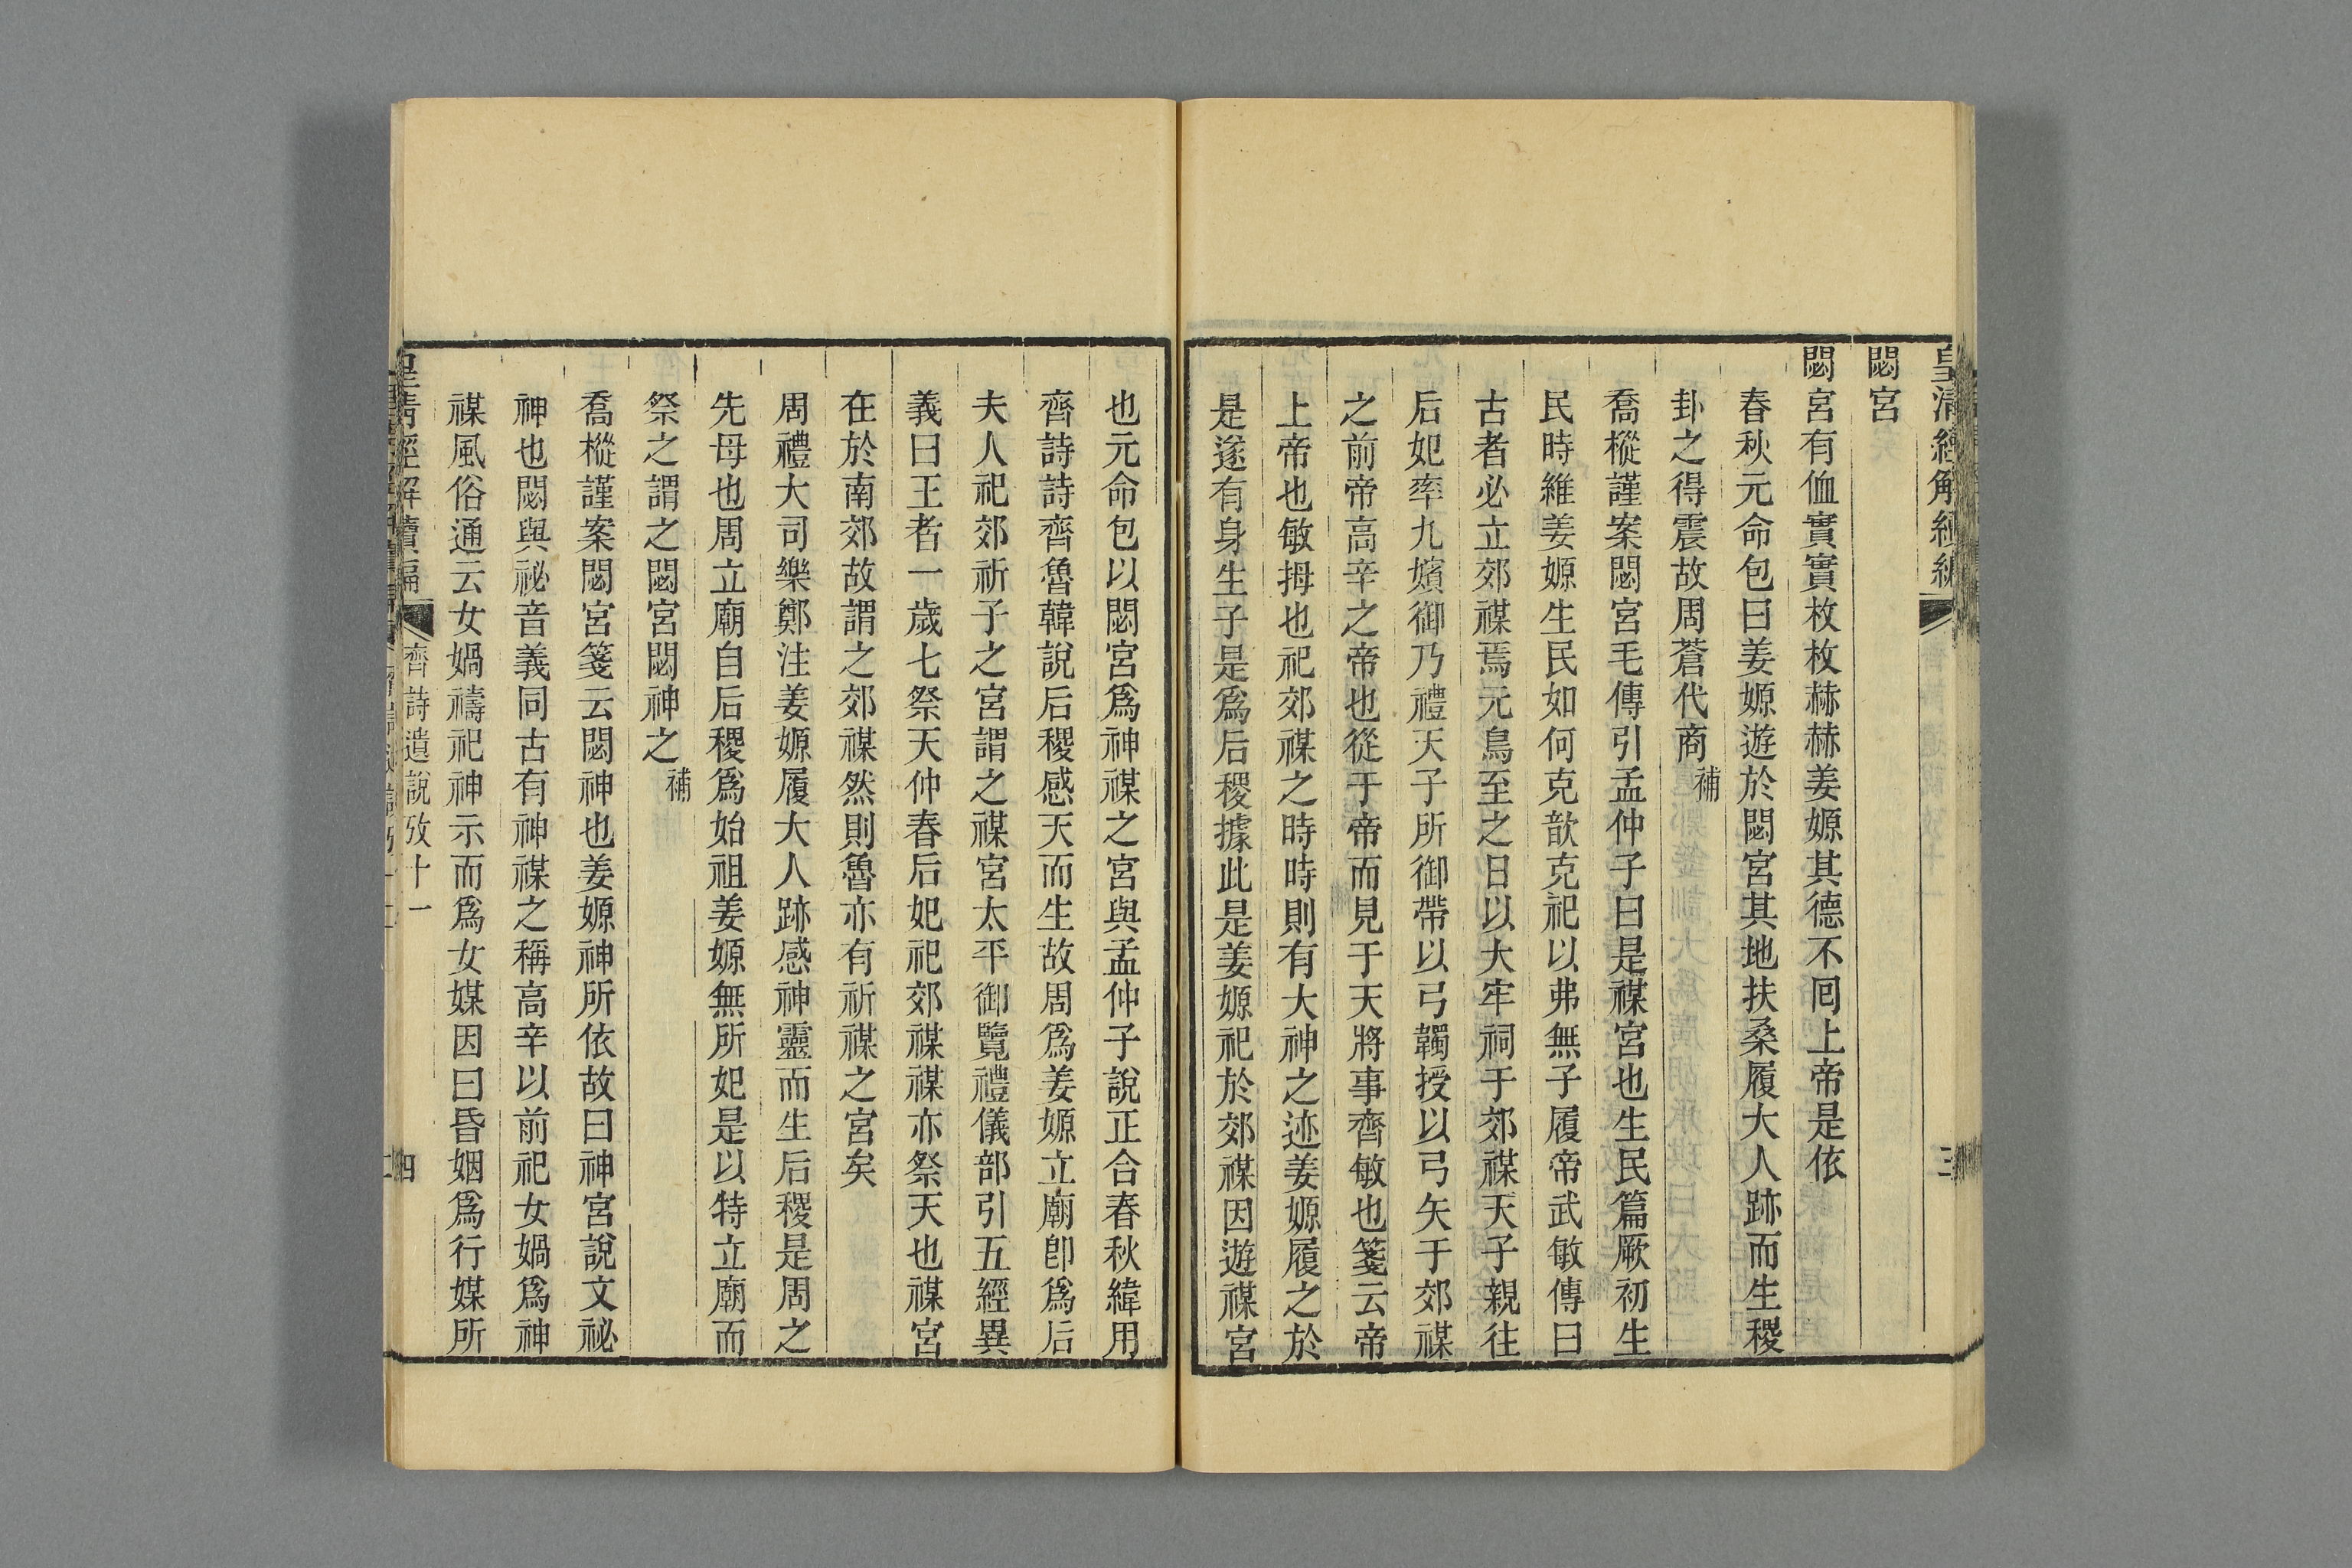 皇清經解續編
三
閟宮
閟宮有侐實實枚枚赫赫姜嫄其德不囘上帝是依
春秋元命包曰姜嫄遊於閟宮其地扶桑履大人跡而生稷
卦之得震故周蒼代商補
喬樅謹案閟宮毛傳引孟仲子曰是禖宮也生民篇厥初生
民時維姜嫄生民如何克歆克祀以弗無子履帝武敏傳曰
古者必立郊禖焉元鳥至之日以大牢祠于郊禖天子親往
后妃率九嬪御乃禮天子所御帶以弓韣授以弓矢于郊禖
之前帝高辛之帝也從于帝而見于天將事齊敏也箋云帝
上帝也敏拇也祀郊禖之時時則有大神之迹姜嫄履之於
是遂有身生子是爲后稷據此是姜嫄祀於郊禖因遊禖宮
也元命包以閟宮爲神禖之宮與孟仲子說正合春秋緯用
齊詩詩齊魯韓說后稷感天而生故周爲姜嫄立廟卽爲后
夫人祀郊祈子之宮謂之禖宮太平御覽禮儀部引五經異
義曰王者一歲七祭天仲春后妃祀郊禖禖亦祭天也禖宮
在於南郊故謂之郊禖然則魯亦有祈禖之宮矣
周禮大司樂鄭注姜嫄履大人跡感神靈而生后稷是周之
先母也周立廟自后稷爲始祖姜嫄無所妃是以特立廟而
祭之謂之閟宮閟神之補
喬樅謹案閟宮箋云閟神也姜嫄神所依故曰神宮說文祕
神也閟與祕音義同古有神禖之稱高辛以前祀女媧爲神
禖風俗通云女媧禱祀神示而爲女媒因曰昏姻爲行媒所
皇清經解續編
齊詩遺說攷十一
四